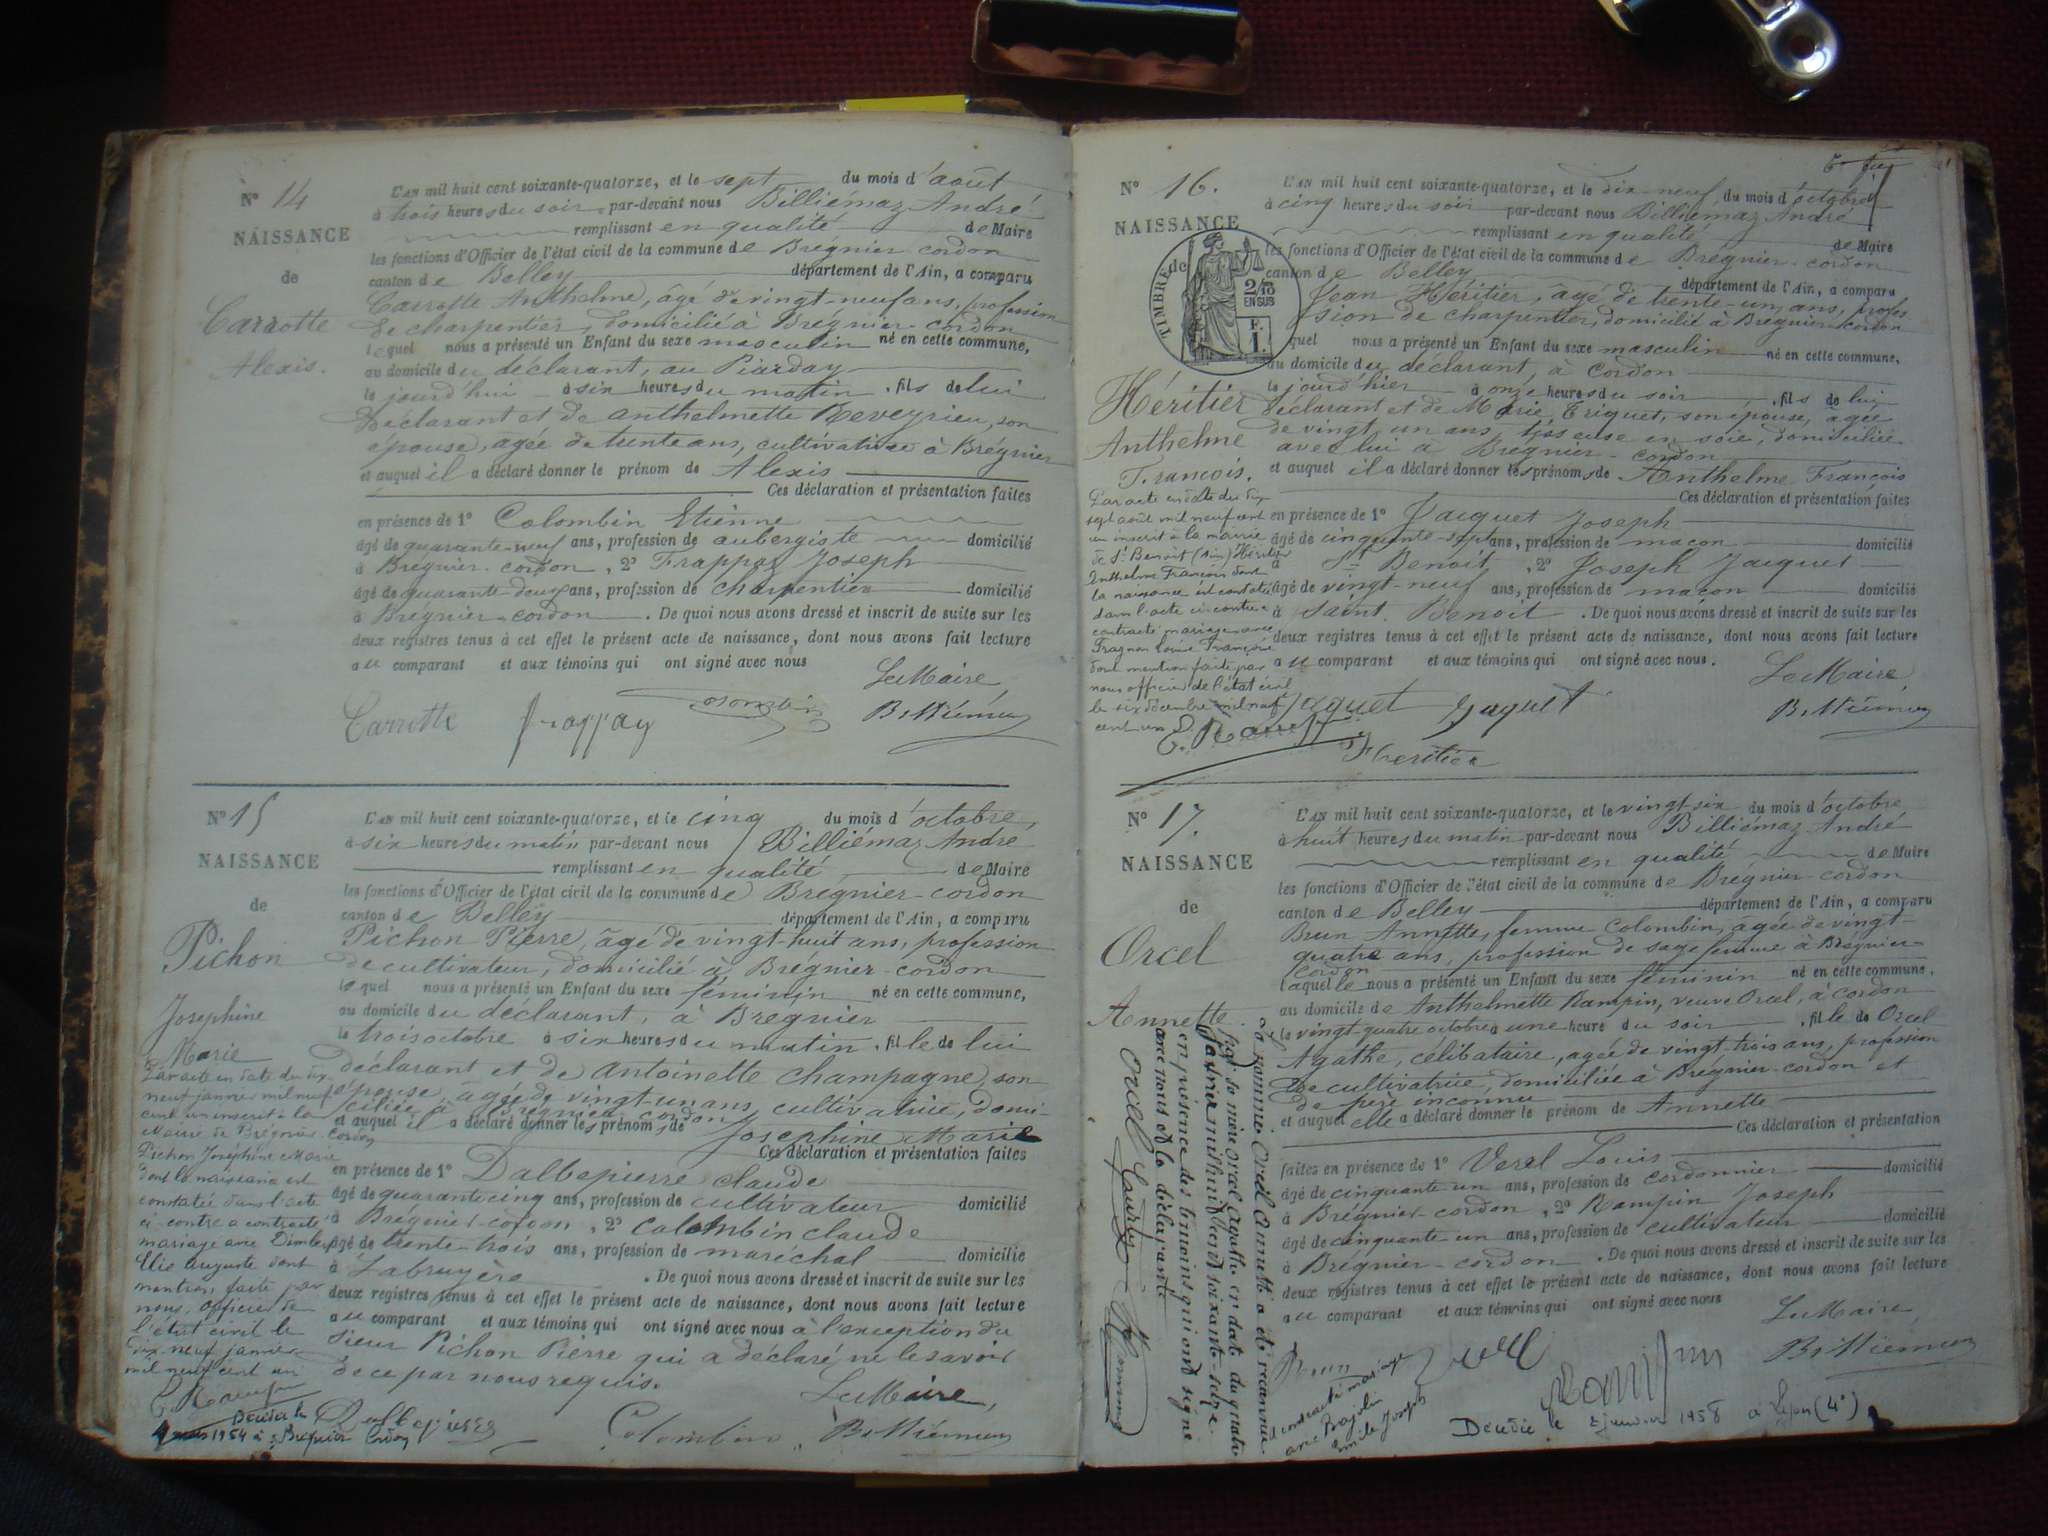 N° 14
NAISSANCE
de
Carrotte
Alexis.
L'AN mil huit cent soixante-quatorze, et le sept du mois d'août
à trois heures du soir par-devant nous Billiémaz André
remplissant en qualité de Maire
les fonctions d'Officier de l'état civil de la commune de Brégnier-cordon
canton de Belley département de l'Ain, a comparu
Carrotte Anthelme, âgé de vingt-neuf ans, profession
de charpentier, domicilié à Brégnier-cordon
lequel nous a présenté un Enfant du sexe masculin né en cette commune,
au domicile du déclarant, au Piarday
le jourd'hui à six heures du matin, fils de lui
déclarant et de anthelmette Reveyrieu, son
épouse, âgée de trente ans, cultivatrice à Brégnier
et auquel il a déclaré donner le prénom de Alexis
Ces déclaration et présentation faites
en présence de 1° Colombin Etienne
âgé de quarante-neuf ans, profession de aubergiste domicilié
à Brégnier-cordon, 2° Frappaz Joseph
âgé de quarante-deux ans, profession de charpentier domicilié
à Brégnier-cordon. De quoi nous avons dressé et inscrit de suite sur les
deux registres tenus à cet effet le présent acte de naissance, dont nous avons fait lecture
au comparant et aux témoins qui ont signé avec nous
Le Maire
Carrotte Frappaz Colombin Billiémaz
N° 15
NAISSANCE
de
Pichon
Josephine
Marie
L'AN mil huit cent soixante-quatorze, et le cinq du mois d'octobre,
à six heures du matin par-devant nous Billiémaz André
remplissant en qualité de Maire
les fonctions d'Officier de l'état civil de la commune de Brégnier-cordon
canton de Belley département de l'Ain, a comparu
Pichon Pierre, âgé de vingt-huit ans, profession
de cultivateur, domicilié à Brégnier-cordon
lequel nous a présenté un Enfant du sexe féminin né en cette commune,
au domicile du déclarant, à Bregnier
le trois octobre à six heures du matin, fille de lui
déclarant et de Antoinette champagne, son
épouse, âgée de vingt-un ans, cultivatrice, domi-
ciliée à Brégnier-cordon
et auquel il a déclaré donner les prénoms de Josephine Marie
Ces déclaration et présentation faites
en présence de 1° Dalbepierre claude
âgé de quarante cinq ans, profession de cultivateur domicilié
à Brégnier-cordon, 2° Colombin claude
âgé de trente-trois ans, profession de maréchal domicilié
à Labruyère. De quoi nous avons dressé et inscrit de suite sur les
deux registres tenus à cet effet le présent acte de naissance, dont nous avons fait lecture
au comparant et aux témoins qui ont signé avec nous à l'exception du
sieur Pichon Pierre qui a déclaré ne le savoir
de ce par nous requis.
Le Maire,
Dalbepierre Colombin Billiémaz
Par acte en date du dix
neuf janvier mil neuf
cent un inscrit à la
Mairie de Brégnier-Cordon
Pichon Joséphine Marie
dont la naissance est
constatée dans l'acte
ci-contre a contracté
mariage avec
Elie Auguste dont
mention faite par
nous, officier de
l'état civil le
dix-neuf janvier
mil neuf cent un
Décédée le
1954 à Brégnier Cordon
N° 16.
NAISSANCE
de
TIMBRE
2/10
EN SUS
F.
1.
Héritier
Anthelme
Francois.
L'AN mil huit cent soixante-quatorze, et le dix-neuf du mois d'octobre
à cinq heures du soir par-devant nous Billiémaz André
remplissant en qualité de Maire
les fonctions d'Officier de l'état civil de la commune de Brégnier-cordon
canton de Belley département de l'Ain, a comparu
Jean Héritier, âgé de trente-un ans, profes
sion de charpentier, domicilié à Brégnier-cordon
quel nous a présenté un Enfant du sexe masculin né en cette commune,
au domicile du déclarant, à Cordon
le jourd'hier à onze heures du soir, fils de lui
déclarant et de Marie Triquet, son épouse, âgée
de vingt-un ans, tisseuse en soie, domiciliée
avec lui à Brégnier-cordon
et auquel il a déclaré donner les prénoms de Anthelme François
Ces déclaration et présentation faites
en présence de 1° Jacquet Joseph
âgé de cinquante-sept ans, profession de macon domicilié
à St Benoit, 2° Joseph Jacquet
âgé de vingt-neuf ans, profession de macon domicilié
à Saint Benoit. De quoi nous avons dressé et inscrit de suite sur les
deux registres tenus à cet effet le présent acte de naissance, dont nous avons fait lecture
au comparant et aux témoins qui ont signé avec nous.
Le Maire,
Jaquet Jaquet Billiémaz
Heritier
Par acte en date du dix
sept août mil neuf cent
un inscrit à la mairie
de St Benoit (Ain) Héritier
Anthelme François dont
la naissance est constatée
dans l'acte ci-contre a
contracté mariage avec
Fragnon Louise Françoise
dont mention faite par
nous officier de l'état civil
le six décembre mil neuf
cent un
N° 17.
NAISSANCE
de
Orcel
Annette
L'AN mil huit cent soixante-quatorze, et le vingt-six du mois d'octobre
à huit heures du matin par-devant nous Billiémaz André
remplissant en qualité de Maire
les fonctions d'Officier de l'état civil de la commune de Brégnier-cordon
canton de Belley département de l'Ain, a comparu
Brun Annette, femme Colombin, âgée de vingt-
quatre ans, profession de sage femme à Brégnier-
cordon
laquelle nous a présenté un Enfant du sexe féminin né en cette commune,
au domicile de Anthelmette Rampin, veuve Orcel, à cordon
le vingt-quatre octobre à une heure du soir, fille de Orcel
Agathe, célibataire, agée de vingt-trois ans, profession
de cultivatrice, domiciliée à Brégnier-cordon et
de père inconnu
et auquel elle a déclaré donner le prénom de Annette
Ces déclaration et présentation
faites en présence de 1° Verel Louis
âgé de cinquante un ans, profession de cordonnier domicilié
à Brégnier-cordon, 2° Rampin Joseph
âgé de cinquante un ans, profession de cultivateur domicilié
à Brégnier-cordon. De quoi nous avons dressé et inscrit de suite sur les
deux registres tenus à cet effet le présent acte de naissance, dont nous avons fait lecture
au comparant et aux témoins qui ont signé avec nous
Le Maire,
Brun Verel Rampin Billiémaz
La nommée Orcel Annette a été reconnue
par sa mère Orcel Agathe en date du quatre
janvier mil huit cent soixante-seize
en présence des témoins qui ont signé
avec nous et la déclarante
a contracté mariage
avec
Emile Joseph
Décédée le 2 janvier 1958 à Lyon (4°)